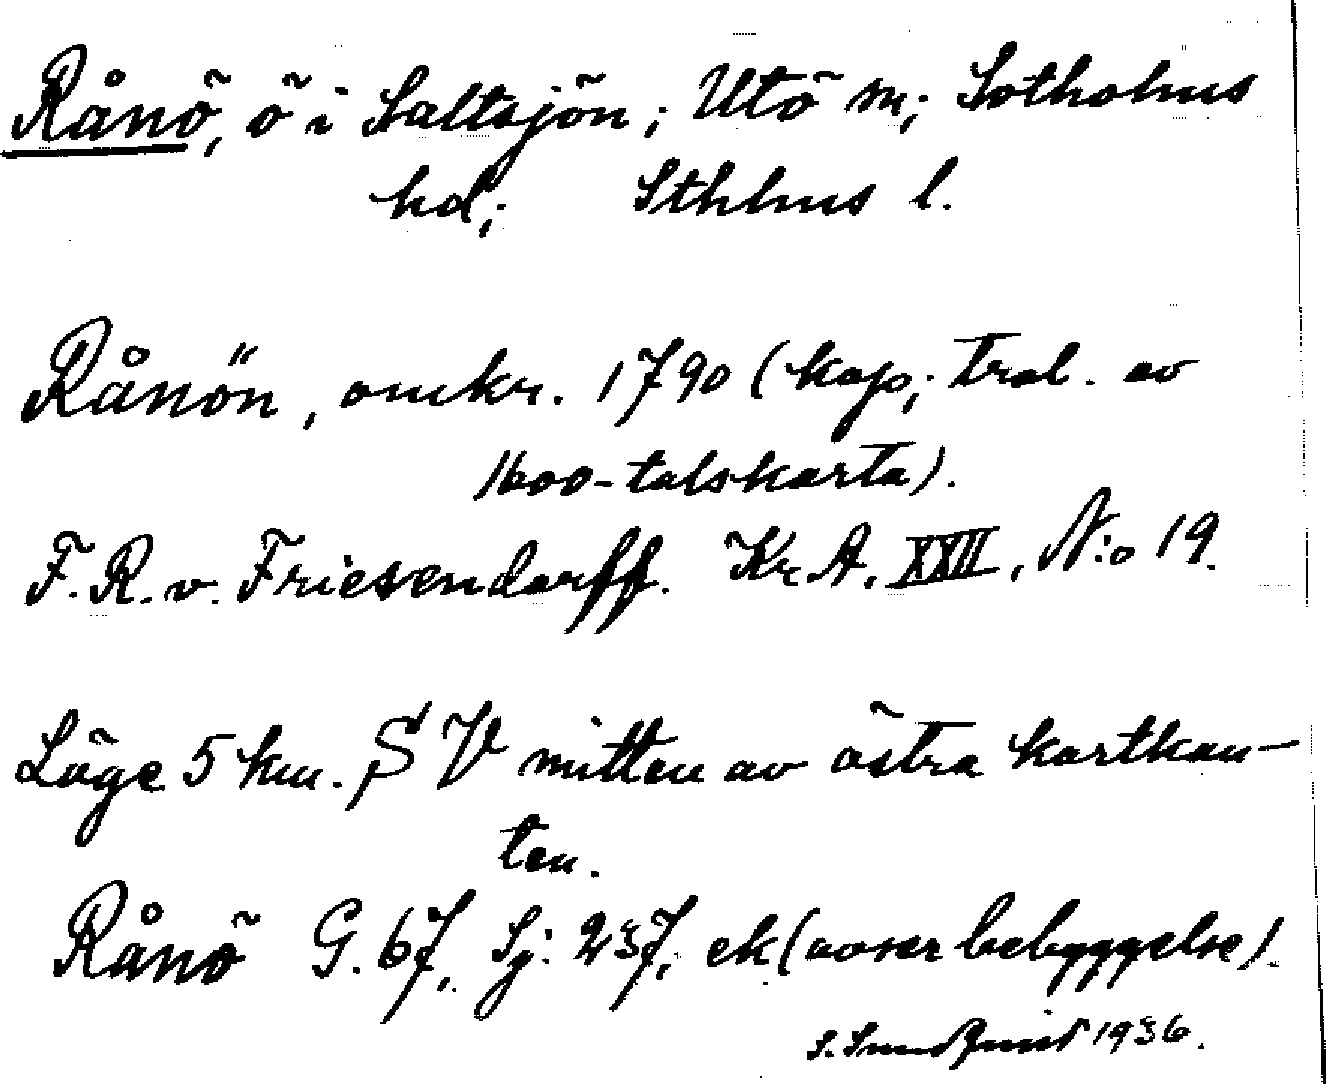 Rånö, ö i Saltsjön; Utö sn; Sotholms
hd; Sthlms l.
Rånön, omkr. 1790 (kop; trol. av
1600-talskarta).
F. R. v. Friesendorff. Kr. A. XXII, N:o 19.
Läge 5 km. SV mitten av östra kartkan-
ten.
Rånö G. 67, Sj: 237, ek (avser bebyggelse).
S. Sundquist 1936.